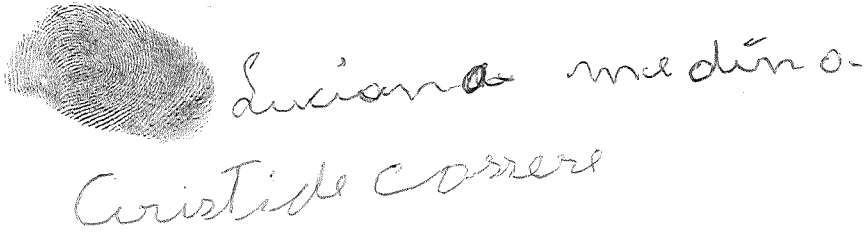 Luciana medina
Aristide Carrere